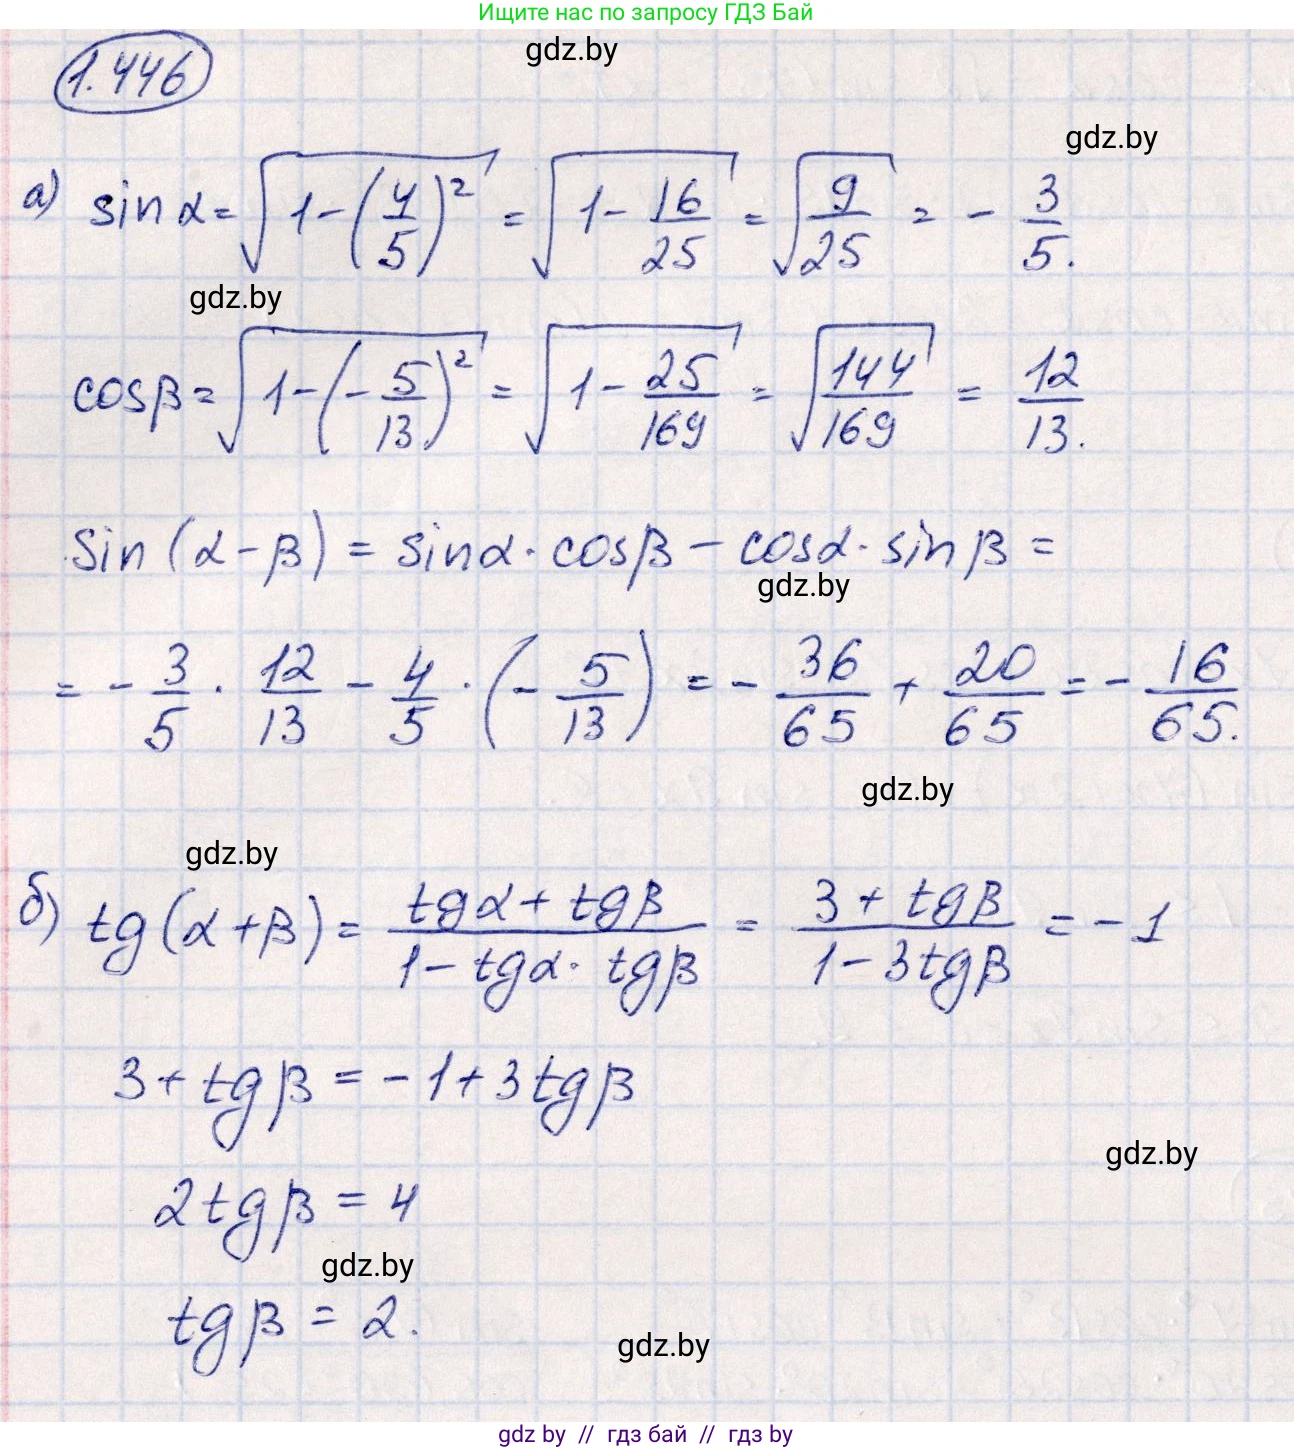 Ищите нас по запросу ГДЗ Бай
gdz.by
1.446
gdz.by
а) sin α = √(1 - (4/5)²) = √(1 - 16/25) = √(9/25) = - 3/5.
gdz.by
cos β = √(1 - (- 5/13)²) = √(1 - 25/169) = √(144/169) = 12/13.
sin (α - β) = sin α · cos β - cos α · sin β =
gdz.by
= - 3/5 · 12/13 - 4/5 · (- 5/13) = - 36/65 + 20/65 = - 16/65.
gdz.by
gdz.by
б) tg (α + β) = (tg α + tg β)/(1 - tg α · tg β) = (3 + tg β)/(1 - 3 tg β) = - 1
3 + tg β = - 1 + 3 tg β
gdz.by
2 tg β = 4
gdz.by
tg β = 2.
gdz.by
gdz by // гдз бай // гдз by